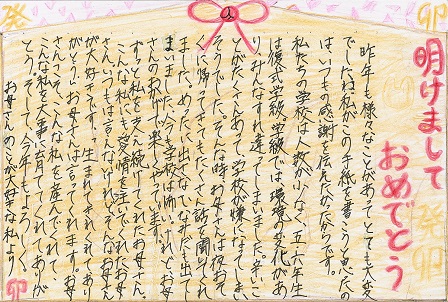 癸
卯
明けまして
おめでとう
昨年も様々なことがあってとても大変
でしたね。私がこの手紙を書こうと思った
はいつもの感謝を伝えたかったからです。
私たちの学校は人数が少なく、五六年生
は複式学級。学級では、環境の変化があ
り、みんなすれ違ってしまいました。辛いこ
とがたくさんあって、学校が嫌になってしまい
そうでした。そんな時、お母さんは夜おそ
くに帰ってきてもたくさん話を聞いてくれ
ました。めったに出ないなみだも出て
まいました。今、学校は楽しいけれど、お母
さんのおかげで楽
ずっと私を支え続けてくれたお母さん。
こんな私にも愛情を注いでくれたお母
さん。いつもは言えないけれど、そんなお母さん
が大好きです。「生まれてきてくれてあり
がとう」お母さんは言ってくれます。お母
さんこそ、こんな私を産んでくれて
こんな私を大事に育ててくれてありが
とう。そして、今年もよろしく。
お母さんのことが大好きな私より
卯